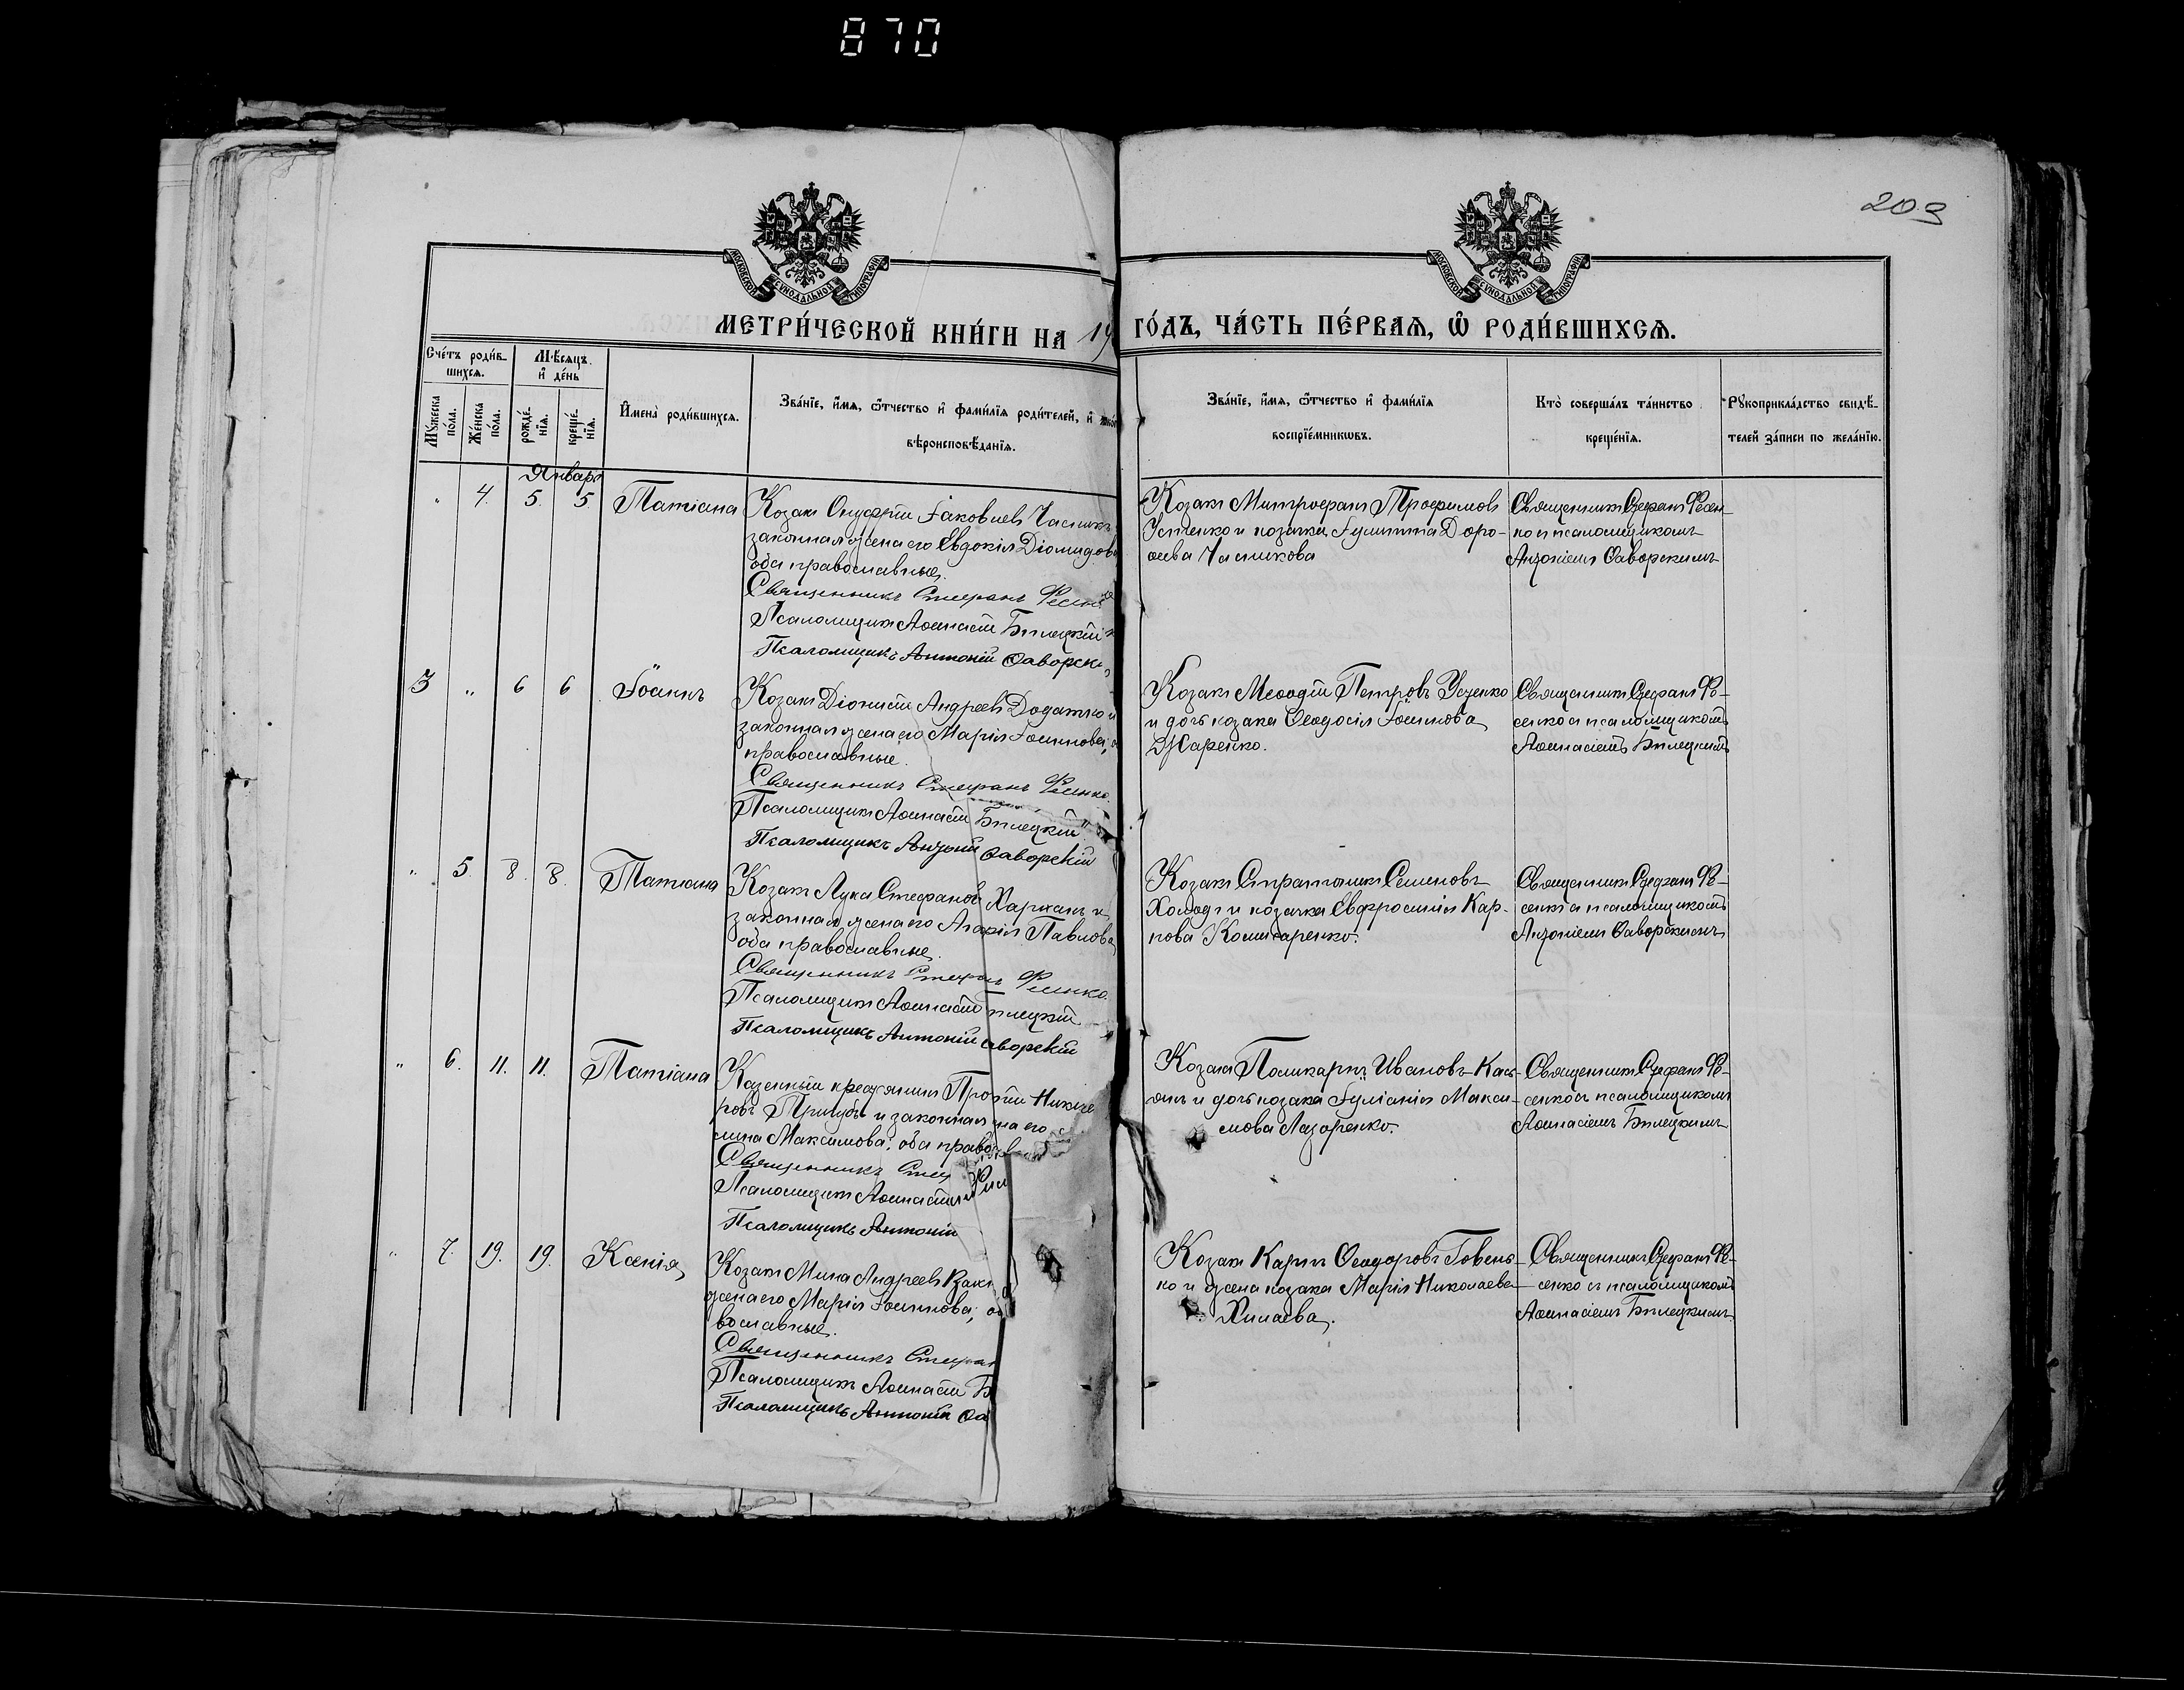 870
203
МОСКОВСКОЙ СѴНОДАЛЬНОЙ ТИПОГРАФІИ
МОСКОВСКОЙ СѴНОДАЛЬНОЙ ТИПОГРАФІИ
МЕТРИ́ЧЕСКОЙ КНИ́ГИ НА 19
ГО́ДЪ, ЧА́СТЬ ПЕ́РВАѦ, Ѿ РОДИ́ВШИХСѦ.
Сче́тъ роди́в-
шихсѧ.
Мꙋ́жеска
по́ла.
Же́нска
по́ла.
Мѣ́сѧцъ
и҆ де́нь
рожде́-
нїѧ.
креще́-
нїѧ.
И҆мена̀ роди́вшихсѧ.
Зва́нїе, и҆́мѧ, ѻ҆́тчество и҆ фами́лїѧ роди́телей, и҆
вѣроисповѣ́данїѧ.
Зва́нїе, и҆́мѧ, ѻ҆́тчество и҆ фами́лїѧ
воспрїе́мникѡвъ.
Кто̀ соверша́лъ та́инство
креще́нїѧ.
Рꙋкоприкла́дство свидѣ́-
телей за́писи по жела́нїю.
Январь
" 4. 5. 5. Татіана
Козакъ Онуфрій Іаковлевъ
законная жена его Евдокія Діомидова
оба православные.
Священникъ Стефанъ
Псаломщикъ Аѳанасій Билецкій
Псаломщикъ Антоній Ѳаворскі
Козакъ Митрофанъ Трофимовъ
Устенко и козачка Іулитта Доро-
ѳеева
Священникъ Стефанъ Фесен-
ко съ псаломщикомъ
Антоніемъ Ѳаворскимъ
3 " 6 6 Іоаннъ
Козакъ Діонисій Андреевъ Додатко и
законная жена его Марія Іоаннова,
православные.
Священникъ Стефанъ Фесенко.
Псаломщикъ Аѳанасій Билецкій
Псаломщикъ Антоній Ѳаворскій
Козакъ Меѳодій Петровъ Усенко
и дочь козака Ѳеодосія Іоаннова
Жаренко.
Священникъ Стефанъ Фе-
сенко съ псаломщикомъ
Аѳанасіемъ Билецкимъ
" 5. 8. 8. Татіана
Козакъ Лука Стефановъ и
законная жена его Агафія Павлова
оба православные.
Священникъ Стефанъ Фесенко.
Псаломщикъ Аѳанасій
Псаломщикъ Антоній аворскій
Козакъ Стратоникъ Семеновъ
Холодъ и козачка Евфросинія Кар-
пова
Священникъ Стефанъ Фе-
сенко съ псаломщикомъ
Антоніемъ Ѳаворскимъ
" 6. 11. 11. Татіана
Казенный крестьянинъ
и законная на его
Максимова; оба правосл
Священникъ Стеф
Псаломщикъ Аѳанасій
Псаломщикъ Антоній
Козакъ Поликарпъ Ивановъ Кась-
янъ и дочь козака Іуліанія Макси-
мова Лазоренко.
Священникъ Стефанъ Фе-
сенко съ псаломщикомъ
Аѳанасіемъ Билецкимъ
" 7. 19. 19. Ксенія
Козакъ Мина Андреевъ
жена его Марія Іоаннова; об
вославные.
Священникъ Стефан
Псаломщикъ Аѳанасій Б
Псаломщикъ Антоній Ѳа
Козакъ Карпъ Ѳеодоровъ Говень-
ко и жена козака Марія Николаева
Священникъ Стефанъ Фе-
сенко съ псаломщикомъ
Аѳанасіемъ Билецкимъ